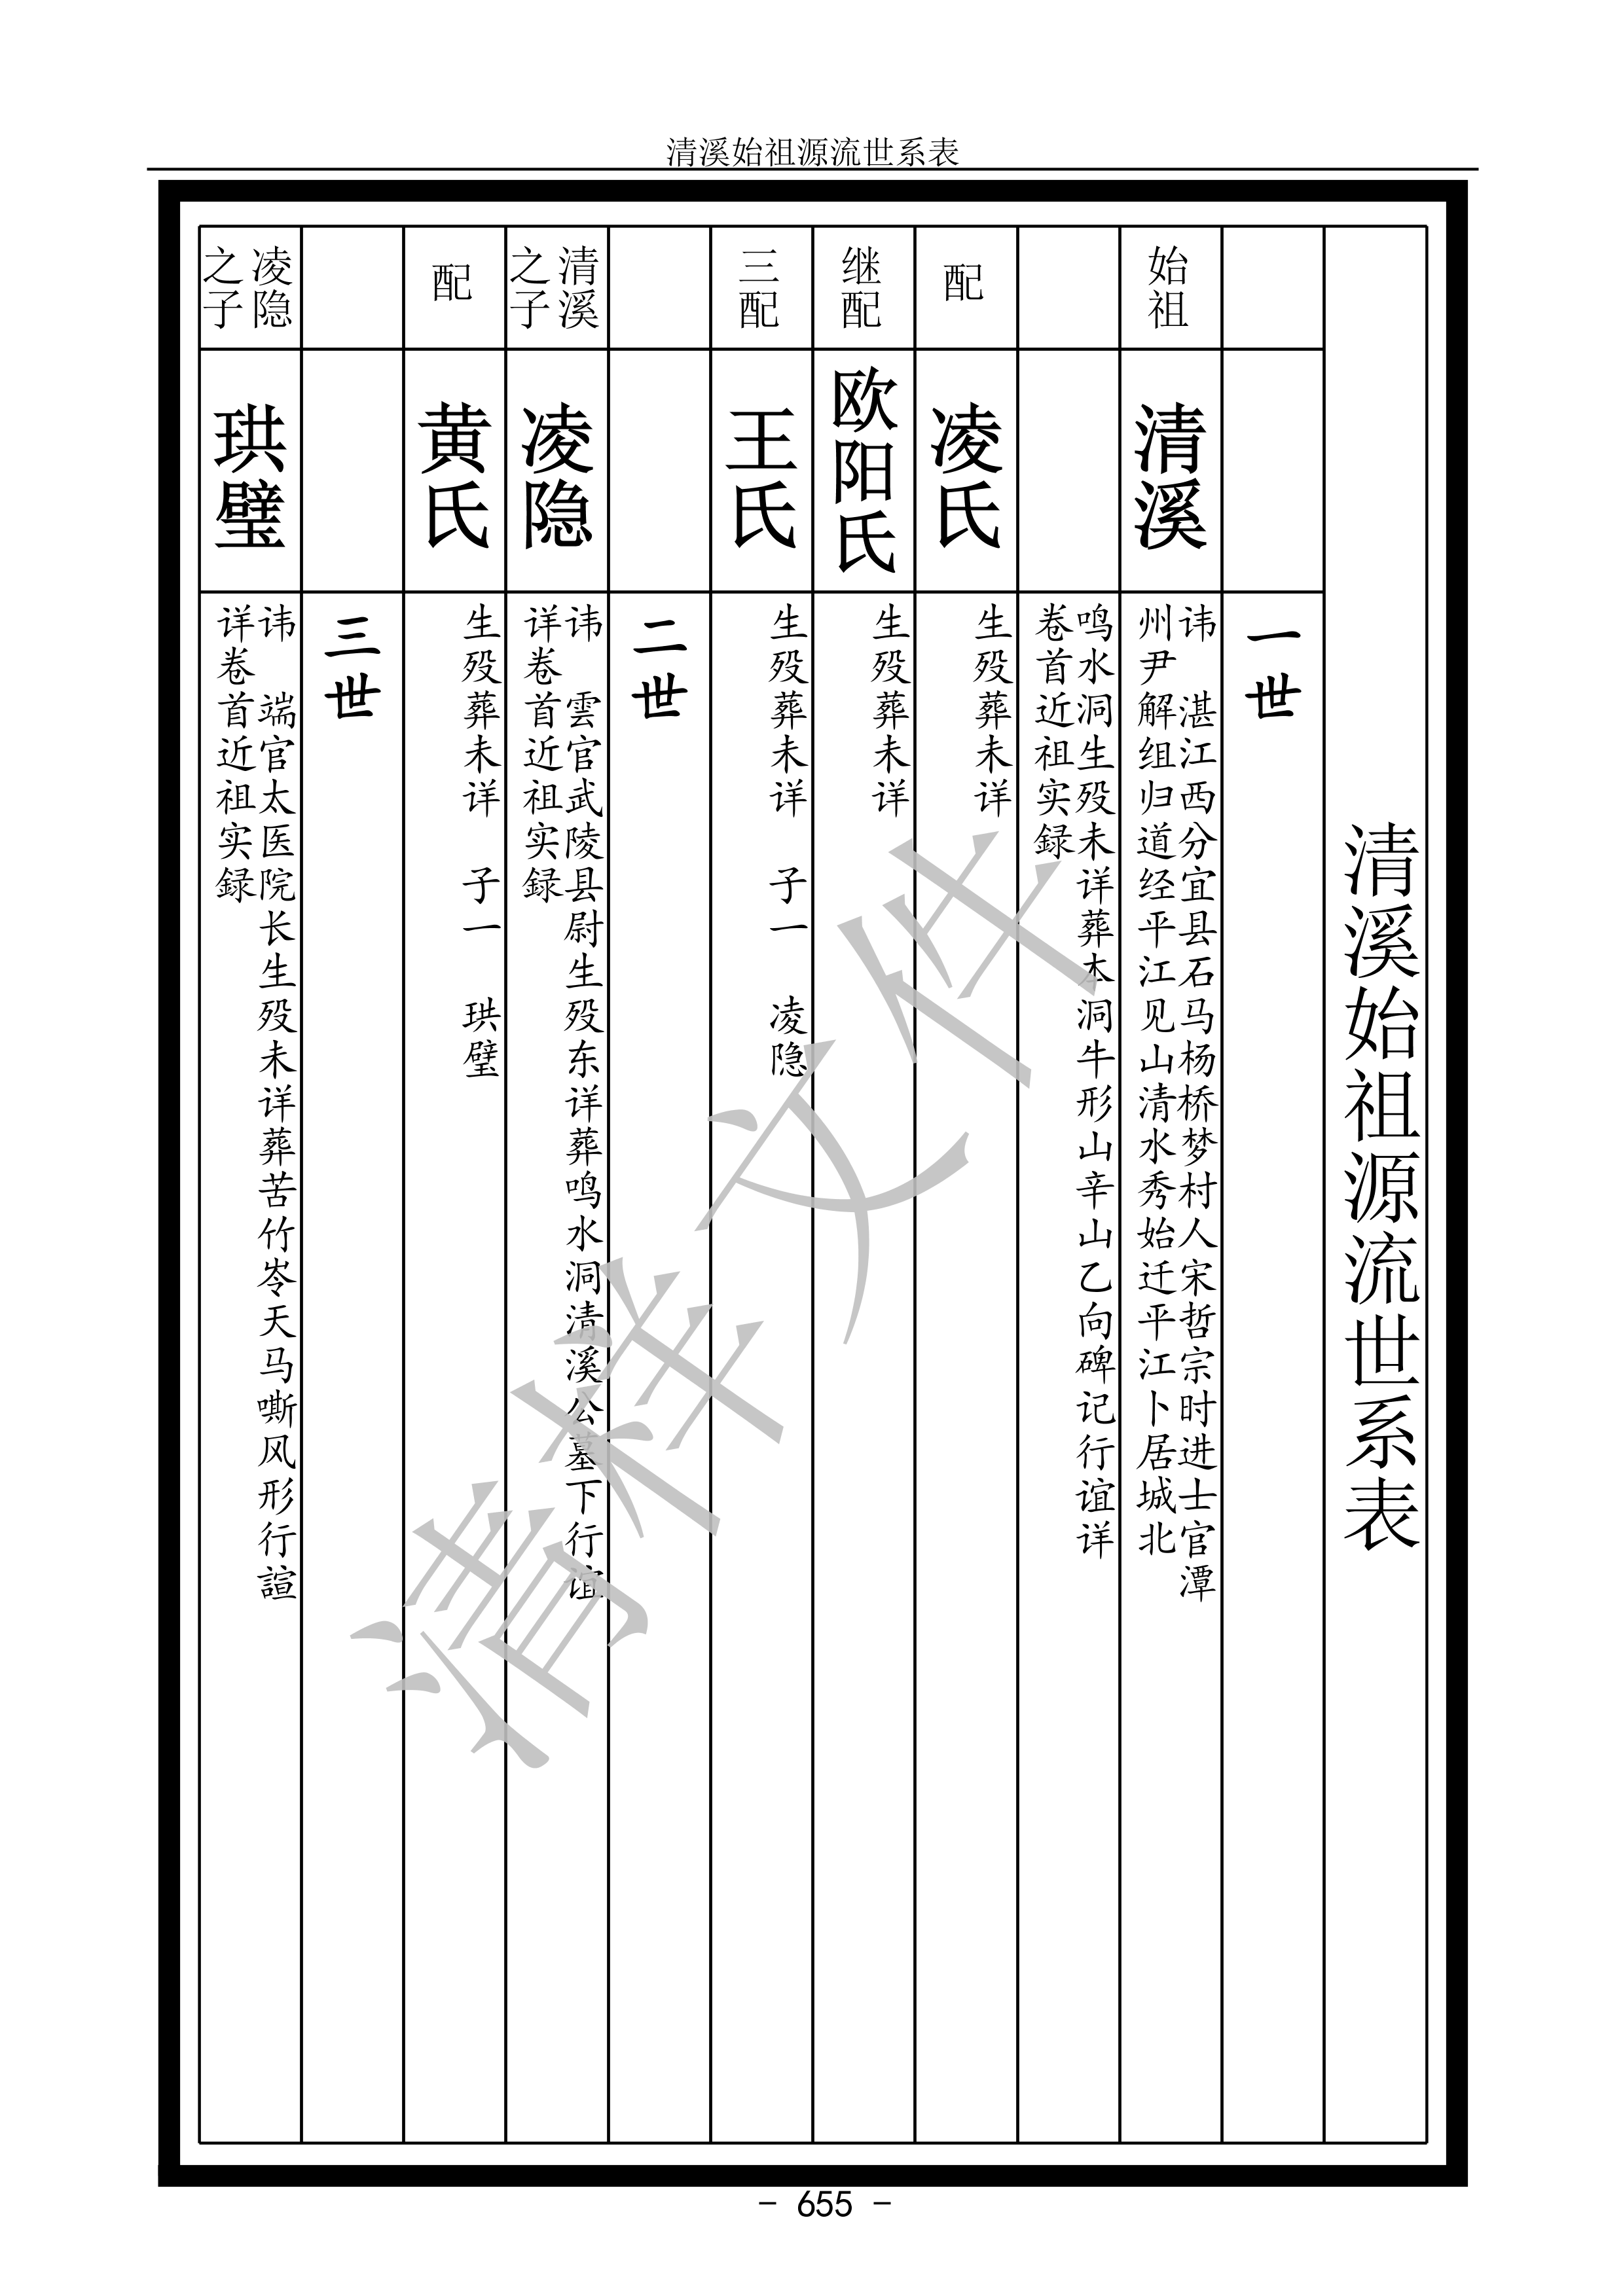 清溪始祖源流世系表
清溪始祖源流世系表
一世
始祖
清溪
讳　湛江西分宜县石马杨桥梦村人宋哲宗时进士官潭
州尹解组归道经平江见山清水秀始迁平江卜居城北
鸣水洞生殁未详葬本洞牛形山辛山乙向碑记行谊详
卷首近祖实録
配
凌氏
生殁葬未详
继配
欧阳氏
生殁葬未详
三配
王氏
生殁葬未详　子一　凌隐
二世
清溪
之子
凌隐
讳　雲官武陵县尉生殁东详葬鸣水洞清溪公墓下行谊
详卷首近祖实録
配
黄氏
生殁葬未详　子一　珙璧
三世
凌隐
之子
珙璧
讳　端官太医院长生殁未详葬苦竹岺天马嘶风形行諠
详卷首近祖实録
清样文件
- 655 -